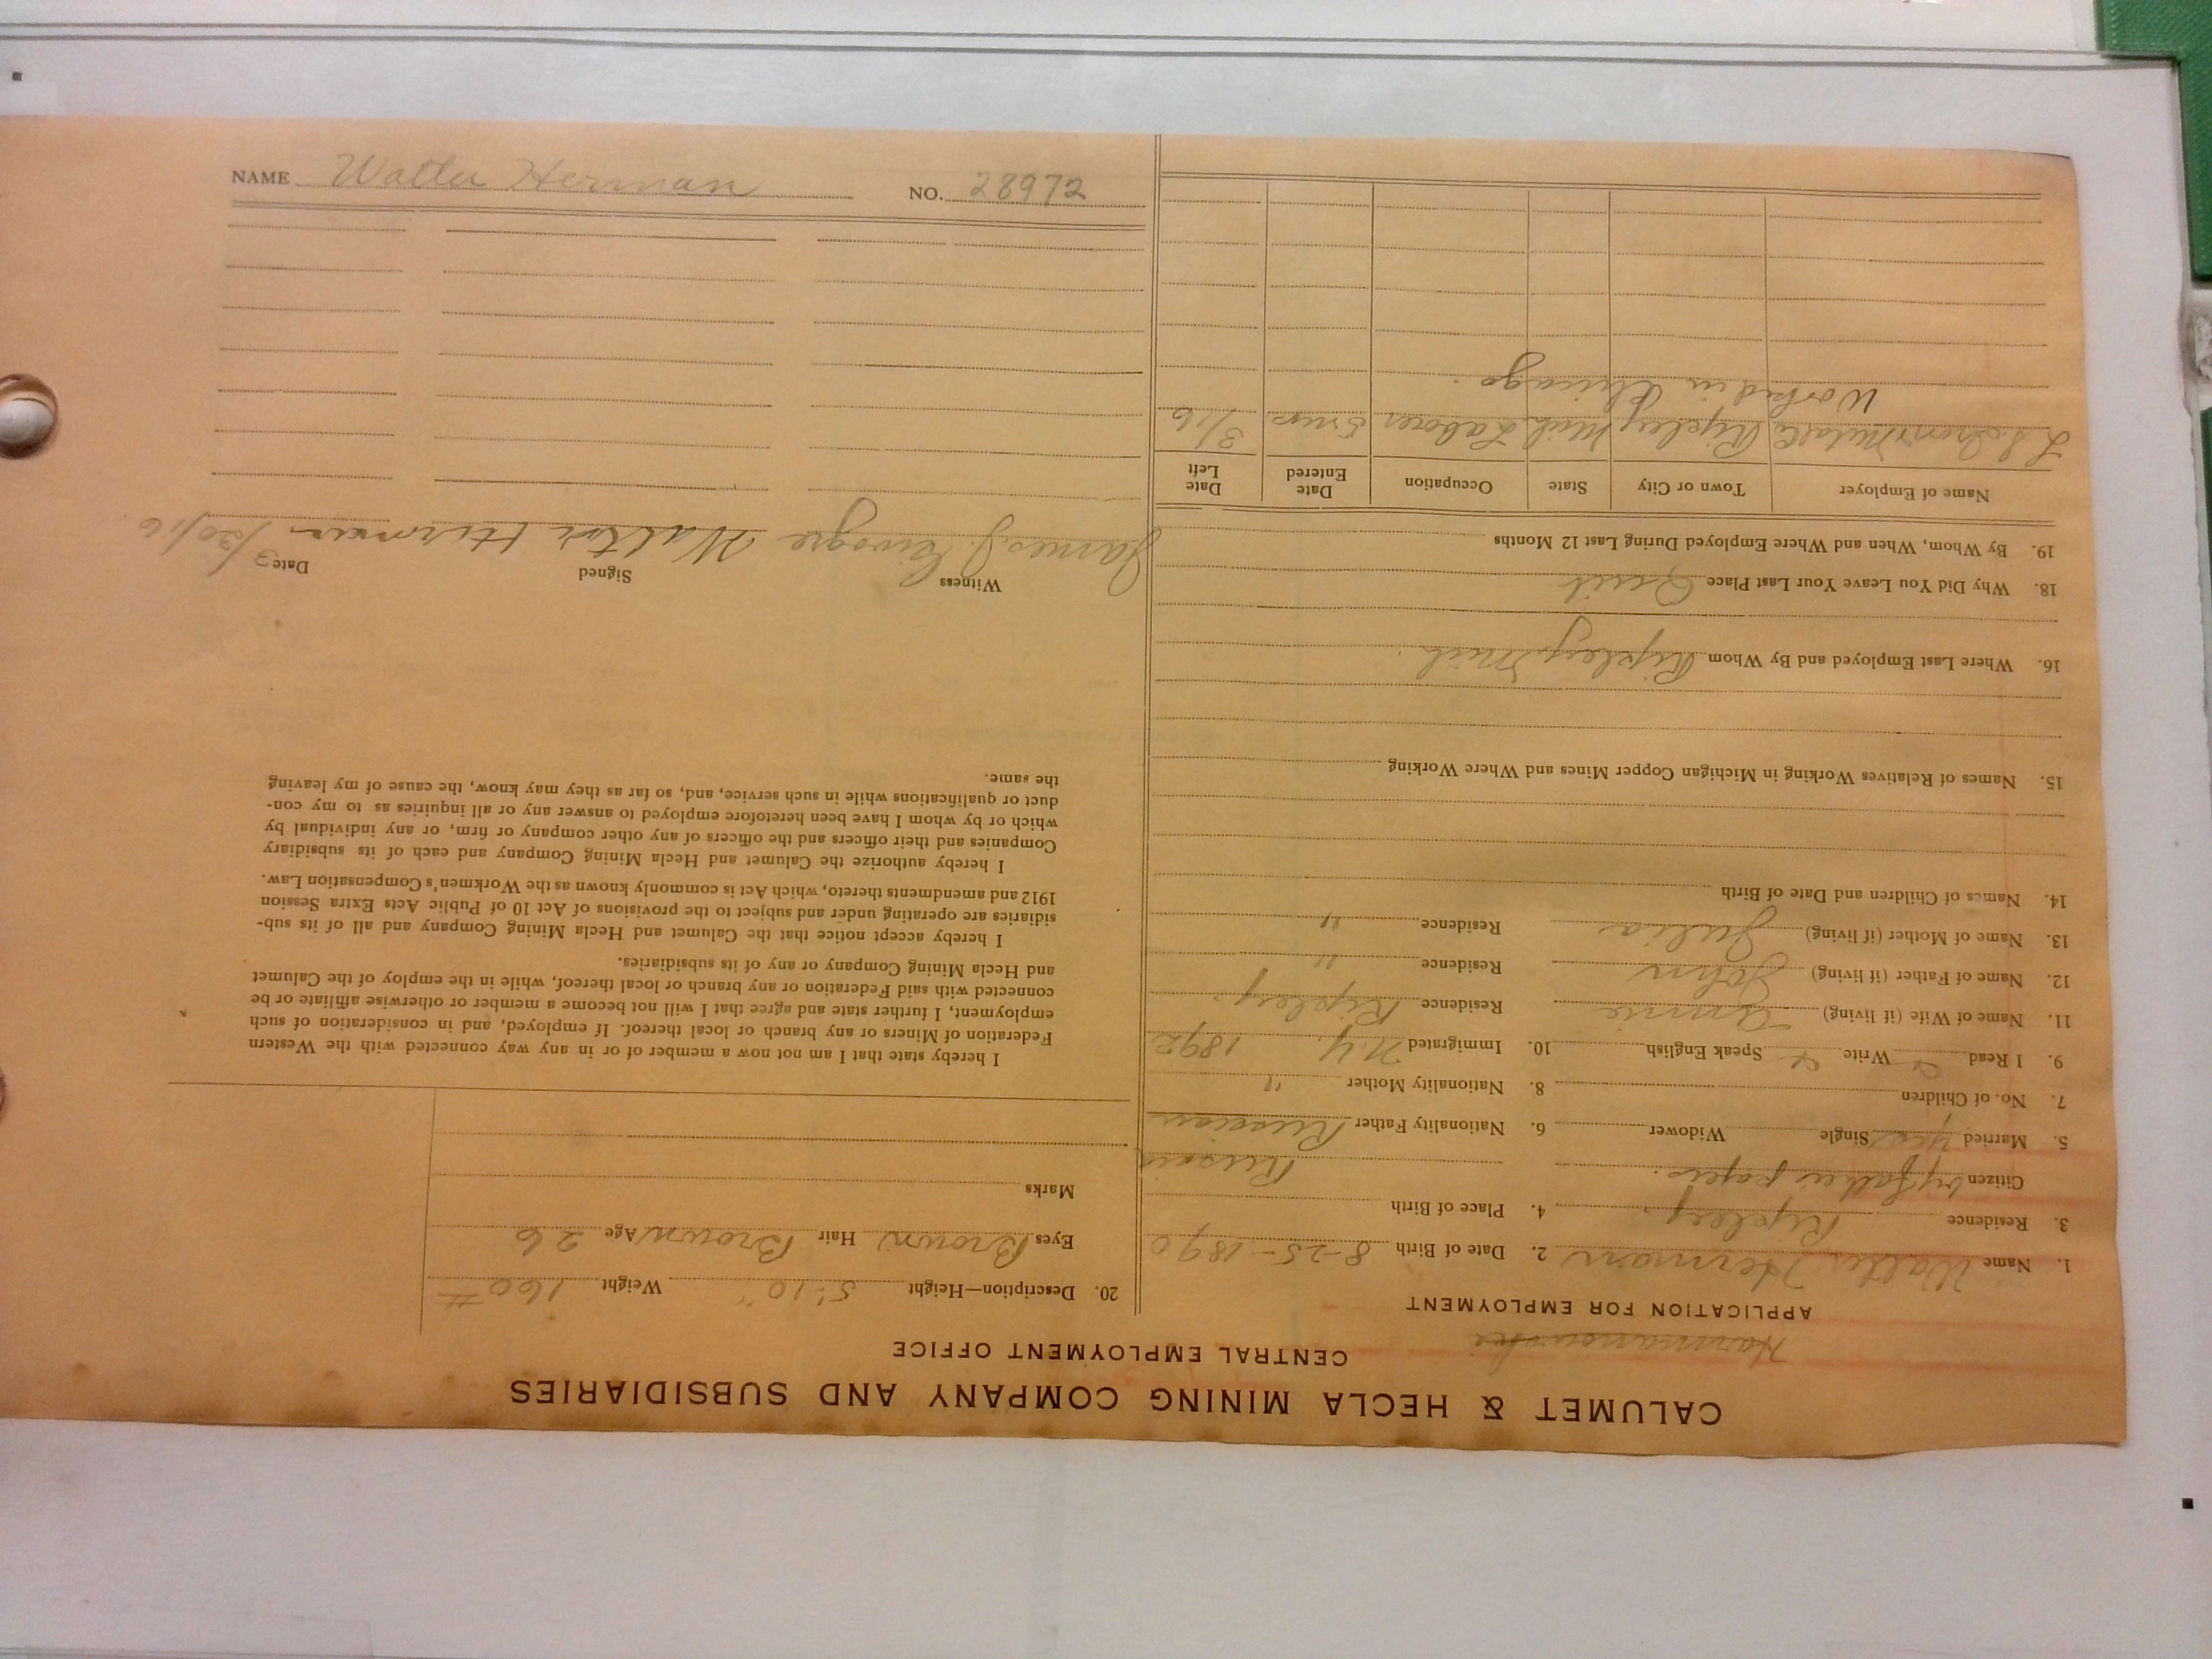 CALUMET & HECLA MINING COMPANY AND SUBSIDIARIES
CENTRAL EMPLOYMENT OFFICE
Harmanowski
APPLICATION FOR EMPLOYMENT
1. Name Walter Herman 2. Date of Birth 8-25-1890
3. Residence Ripley. 4. Place of Birth
Citizen by fathers papers. Russia
5. Married yes Single Widower 6. Nationality Father Russian
7. No. of Children 8. Nationality Mother "
9. I Read Write Speak English 10. Immigrated N.Y. 1892
11. Name of Wife (if living) Annie Residence Ripley.
12. Name of Father (if living) John Residence "
13. Name of Mother (if living) Julia Residence "
14. Names of Children and Date of Birth
15. Names of Relatives Working in Michigan Copper Mines and Where Working
16. Where Last Employed and By Whom Ripley Mich.
18. Why Did You Leave Your Last Place Quit
19. By Whom, When and Where Employed During Last 12 Months
Name of Employer Town or City State Occupation Date Entered Date Left
L.S. Iron Metal Ripley Mich Laborer 5 mos 3/16
Worked in Chicago.
20. Description—Height 5'-10" Weight 160 #
Eyes Brown Hair Brown Age 26
Marks
I hereby state that I am not now a member of or in any way connected with the Western
Federation of Miners or any branch or local thereof. If employed, and in consideration of such
employment, I further state and agree that I will not become a member or otherwise affiliate or be
connected with said Federation or any branch or local thereof, while in the employ of the Calumet
and Hecla Mining Company or any of its subsidiaries.
I hereby accept notice that the Calumet and Hecla Mining Company and all of its sub-
sidiaries are operating under and subject to the provisions of Act 10 of Public Acts Extra Session
1912 and amendments thereto, which Act is commonly known as the Workmen's Compensation Law.
I hereby authorize the Calumet and Hecla Mining Company and each of its subsidiary
Companies and their officers and the officers of any other company or firm, or any individual by
which or by whom I have been heretofore employed to answer any or all inquiries as to my con-
duct or qualifications while in such service, and, so far as they may know, the cause of my leaving
the same.
Witness Signed Date 3/30/16
James J. Walter Herman
NAME Walter Herman NO. 28972